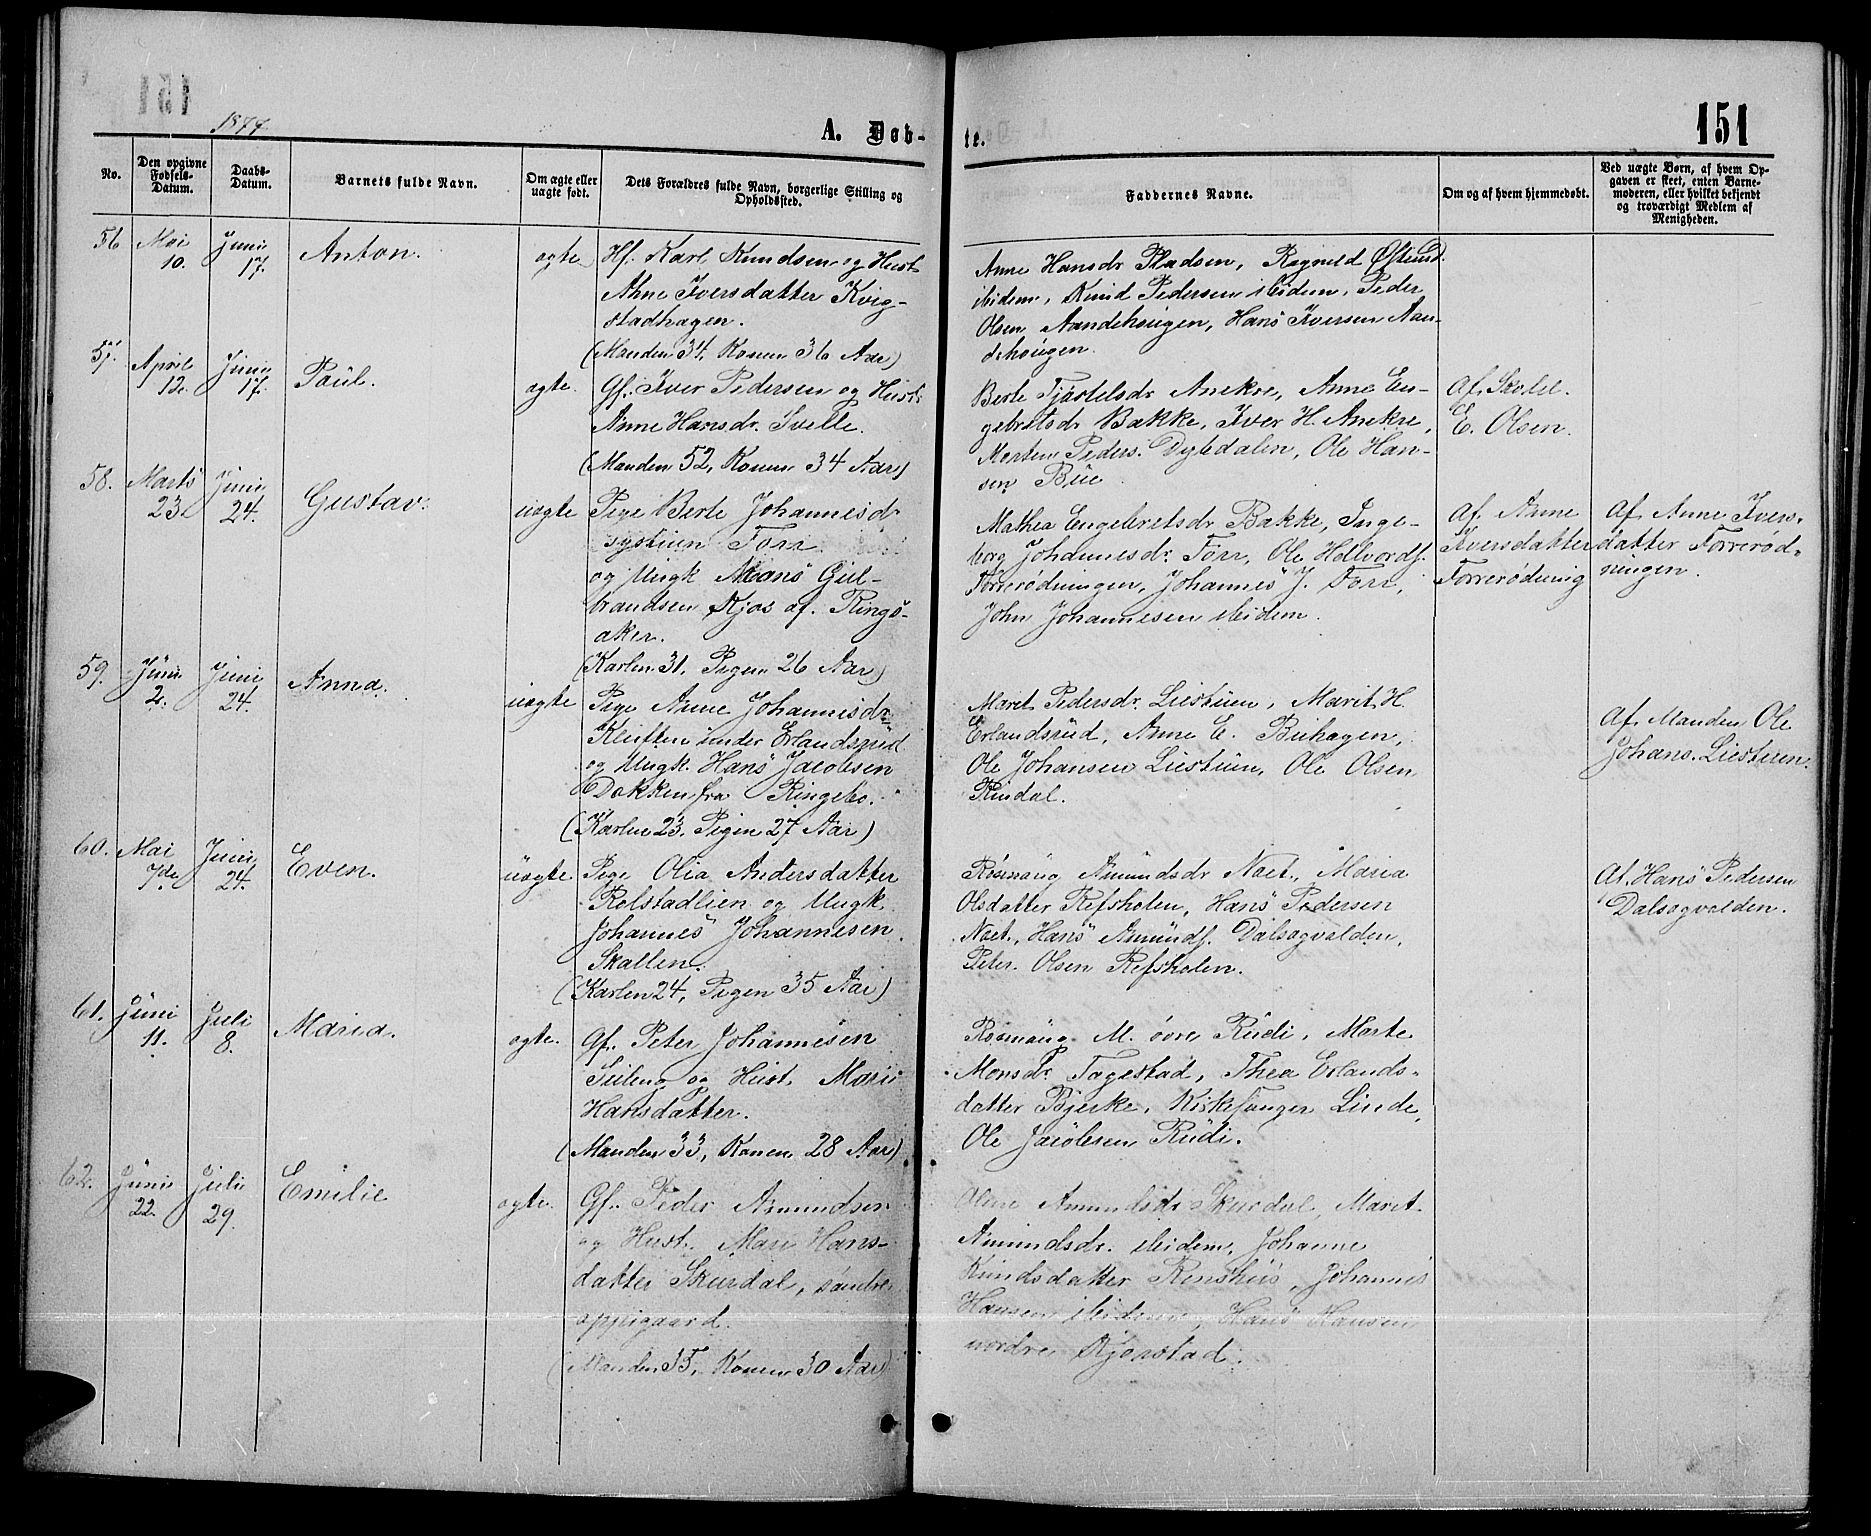 151
1877
A. Døb-
No.
Den opgivne
Fødsels-
Datum.
Daabs-
Datum.
Barnets fulde Navn.
Om ægte eller
uægte født.
Dets Forældres fulde Navn, borgerlige Stilling og
Opholdssted.
56.
Mai
10.
Juni
17.
Anton.
ægte
Hf. Karl Knudsen og Hust.
Ahne Iversdatter Kvig-
stadhagen.
(Manden 34, Konen 36 Aar)
57.
April
12.
Juni
17.
Paul.
ægte.
Gf. Iver Pedersen og Hust.
Anne Hansdr. Svelle.
(Manden 52, Konen 34 Aar)
58.
Marts
23.
Juni
24.
Gustav.
uægte
Pige Berte Johannesdr
systuen Forr
og Ungk. Mons Gul-
brandsen Kjos af Rings-
aker.
(Karlen 31. Pigen 26 Aar)
59.
Juni
2.
Juni
24.
Anna.
uægte
Pige Anne Johannesdr.
Kleiften under Erlandsrud
og Ungk. Hans Jacobsen
Dokken fra Ringebo.
(Karlen 23. Pigen 27 Aar)
60.
Mai
7de
Juni
24.
Even.
uægte.
Pige Olia Andersdatter
Rolstadlien og Ungk.
Johannes Johannesen
Skallen.
(Karlen 24, Pigen 35 Aar)
61.
Juni
11.
Juli
8.
Maria.
ægte.
Gf. Peter Johannesen
Teilung og Hust. Mari
Hansdatter.
(Manden 33, Konen 28 Aar)
62.
Juni
22.
Juli
29.
Emilie
ægte.
Gf. Peder Amundsen
og Hust. Mari Hans-
datter Skurdal, søndre
oppigaard.
(Manden 35, Konen 30 Aar)
te.
151
Faddernes Navne.
Om og af hvem hjemmedøbt.
Ved uægte Børn, af hvem Op-
gaven er skeet, enten Barne-
moderen, eller hvilket bekjendt
og troværdigt Medlem af
Menigheden.
Anne Hansdr Pladsen, Ragnild Østlund
ibidem, Knud Pedersen ibidem, Peder
Olsen Aandehougen, Hans Iversen Aan-
dehougen.
Berte Tjøstelsdr Anekre, Anne En-
gebretsdr Bakke, Iver H. Anekre,
Morten Peders. Dybdalen, Ole Han-
sen Bue.
Af Skolel.
E. Olsen.
Mathea Engebretsdr Bakke, Inge-
borg Johannesdr. Forr, Ole Halvords.
Forrerødningen, Johannes J. Forr,
John Johannesen ibidem.
Af Anne
Iversdatter
Forrerødning
Af Anne Ivers-
datter Forrerød-
ningen.
Maret Pedersdr. Liestuen, Marit H.
Erlandsrud, Anne E. Buhagen,
Ole Johansen Liestuen, Ole Olsen
Rindal.
Af Manden Ole
Johans. Liestuen.
Rønnaug Amundsdr Noet, Maria
Olsdatter Refsholen, Hans Pedersen
Noet, Hans Amunds. Dalsøgvolden,
Peter Olsen Refsholen.
Af Hans Pedersen
Dalsøgvolden.
Rønnaug M. øvre Rudi, Marte
Monsdr. Fagestad, Thea Erlands-
datter Bjerke, Kirkesanger Linde,
Ole Jacobsen Rudi.
Oline Amundsdr Skurdal, Maret
Amundsdr. ibidem, Johanne
Knudsdatter Renshus, Johannes
Hansen ibidem, Hans Hansen
nordre Kjønstad.